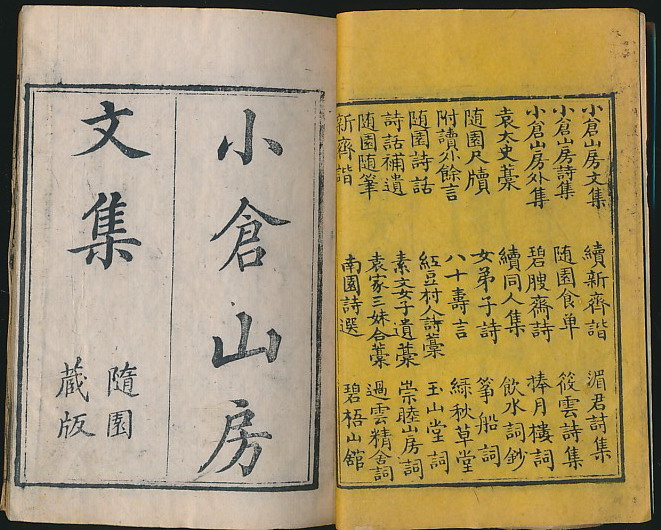 小倉山房文集 續新齊諧 湄君詩集
小倉山房詩集 随園食单 筱雲詩集
小倉山房外集 碧腴齋詩 捧月樓詞
袁太史藁 續同人集 飲水詞鈔
随園尺牘 女弟子詩 筝船詞
附讀外餘言 八十壽言 緑秋草堂
随園詩話 紅豆村人詩藁 玉山堂詞
詩話補遺 素文女子遺藁 崇睦山房詞
随園随筆 袁家三妹合藁 過雲精舍詞
新齊諧 南園詩選 碧梧山館
小倉山房
文集
隨園
藏版